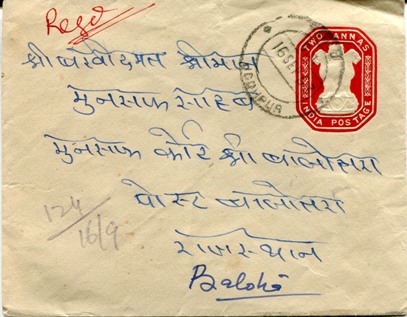 Regd
TWO ANNAS
INDIA POSTAGE
16 SE
श्रीमान
मुनसफ साहेब
मुनसफ कोर्ट श्री बालोतरा
पोस्ट बालोतरा
राजस्थान
124
16/9